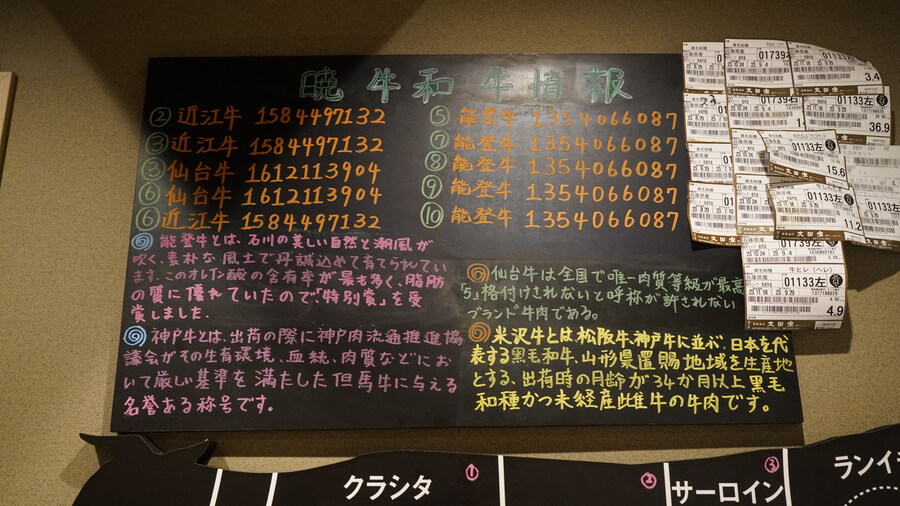 暁 牛 和 牛 情 報
② 近江牛 1584497132
③ 近江牛 1584497132
③ 仙台牛 1612113904
⑥ 仙台牛 1612113904
⑥ 近江牛 1584497132
⑤ 能登牛 1354066087
⑦ 能登牛 1354066087
⑧ 能登牛 1354066087
⑨ 能登牛 1354066087
⑩ 能登牛 1354066087
能登牛とは、石川の美しい自然と潮風が
吹く、素朴な風土で丹精込めて育てられてい
ます。このオレイン酸の含有率が最も多く、脂肪
の質に優れていたので「特別賞」を受
賞しました.
神戸牛とは、出荷の際に神戸肉流通推進協
議会がその生育環境、血統、肉質などにお
いて厳しい基準を満たした但馬牛に与える
名誉ある称号です。
仙台牛は全国で唯一肉質等級が最高
「5」格付けされないと呼称が許されない
ブランド牛肉である。
米沢牛とは松阪牛神戸牛に並ぶ、日本を代
表する黒毛和牛、山形県置賜地域を生産地
とする、出荷時の月齢が34か月以上黒毛
和種かつ未経産雌牛の牛肉です。
01739
01133左
3.4
01739右
01133左
36.9
01133左
15.6
01133左
11.2
01739左
牛ヒレ(ヘレ)
01133左
4.9
クラシタ
①
②
サーロイン
③
ランイ